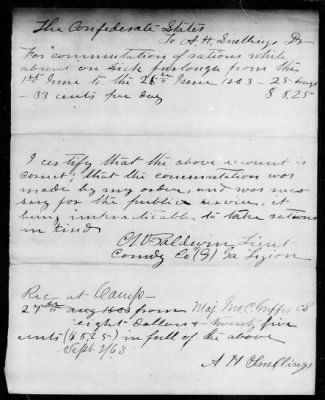 The Confederate States
To A. H. Snellings Dr
For commutation of rations while
absent on Sick furlough from the
1st June to the 25th June 1863 - 25 days
- 33 cents per day $ 8.25
I certify that the above account is
correct; that the commutation was
made by my order, and was neces-
sary for the public service, it
being impracticable to take rations
in kind
C W Baldwin Lieut
Comdg Co (G) Ga Legion
Rec at Camp
27th aug 1863 from Maj. CS
eight Dollars & twenty five
cents ($8.25) in full of the above
Sept 2/63
A H Snellings